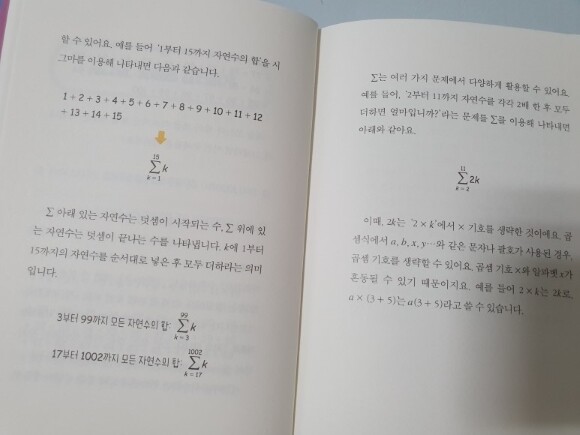 할 수 있어요. 예를 들어 '1부터 15까지 자연수의 합'을 시
그마를 이용해 나타내면 다음과 같습니다.
1 + 2 + 3 + 4 + 5 + 6 + 7 + 8 + 9 + 10 + 11 + 12
+ 13 + 14 + 15
15
∑k
k=1
∑ 아래 있는 자연수는 덧셈이 시작되는 수, ∑ 위에 있
는 자연수는 덧셈이 끝나는 수를 나타냅니다. k에 1부터
15까지의 자연수를 순서대로 넣은 후 모두 더하라는 의미
입니다.
99
3부터 99까지 모든 자연수의 합: ∑k
k=3
1002
17부터 1002까지 모든 자연수의 합: ∑k
k=17
∑는 여러 가지 문제에서 다양하게 활용할 수 있어요.
예를 들어, '2부터 11까지 자연수를 각각 2배 한 후 모두
더하면 얼마입니까?'라는 문제를 ∑을 이용해 나타내면
아래와 같아요.
11
∑2k
k=2
이때, 2k는 '2 × k'에서 × 기호를 생략한 것이에요. 곱
셈식에서 a, b, x, y…와 같은 문자나 괄호가 사용된 경우,
곱셈 기호를 생략할 수 있어요. 곱셈 기호 ×와 알파벳 x가
혼동될 수 있기 때문이지요. 예를 들어 2 × k는 2k로,
a × (3 + 5)는 a(3 + 5)라고 쓸 수 있습니다.